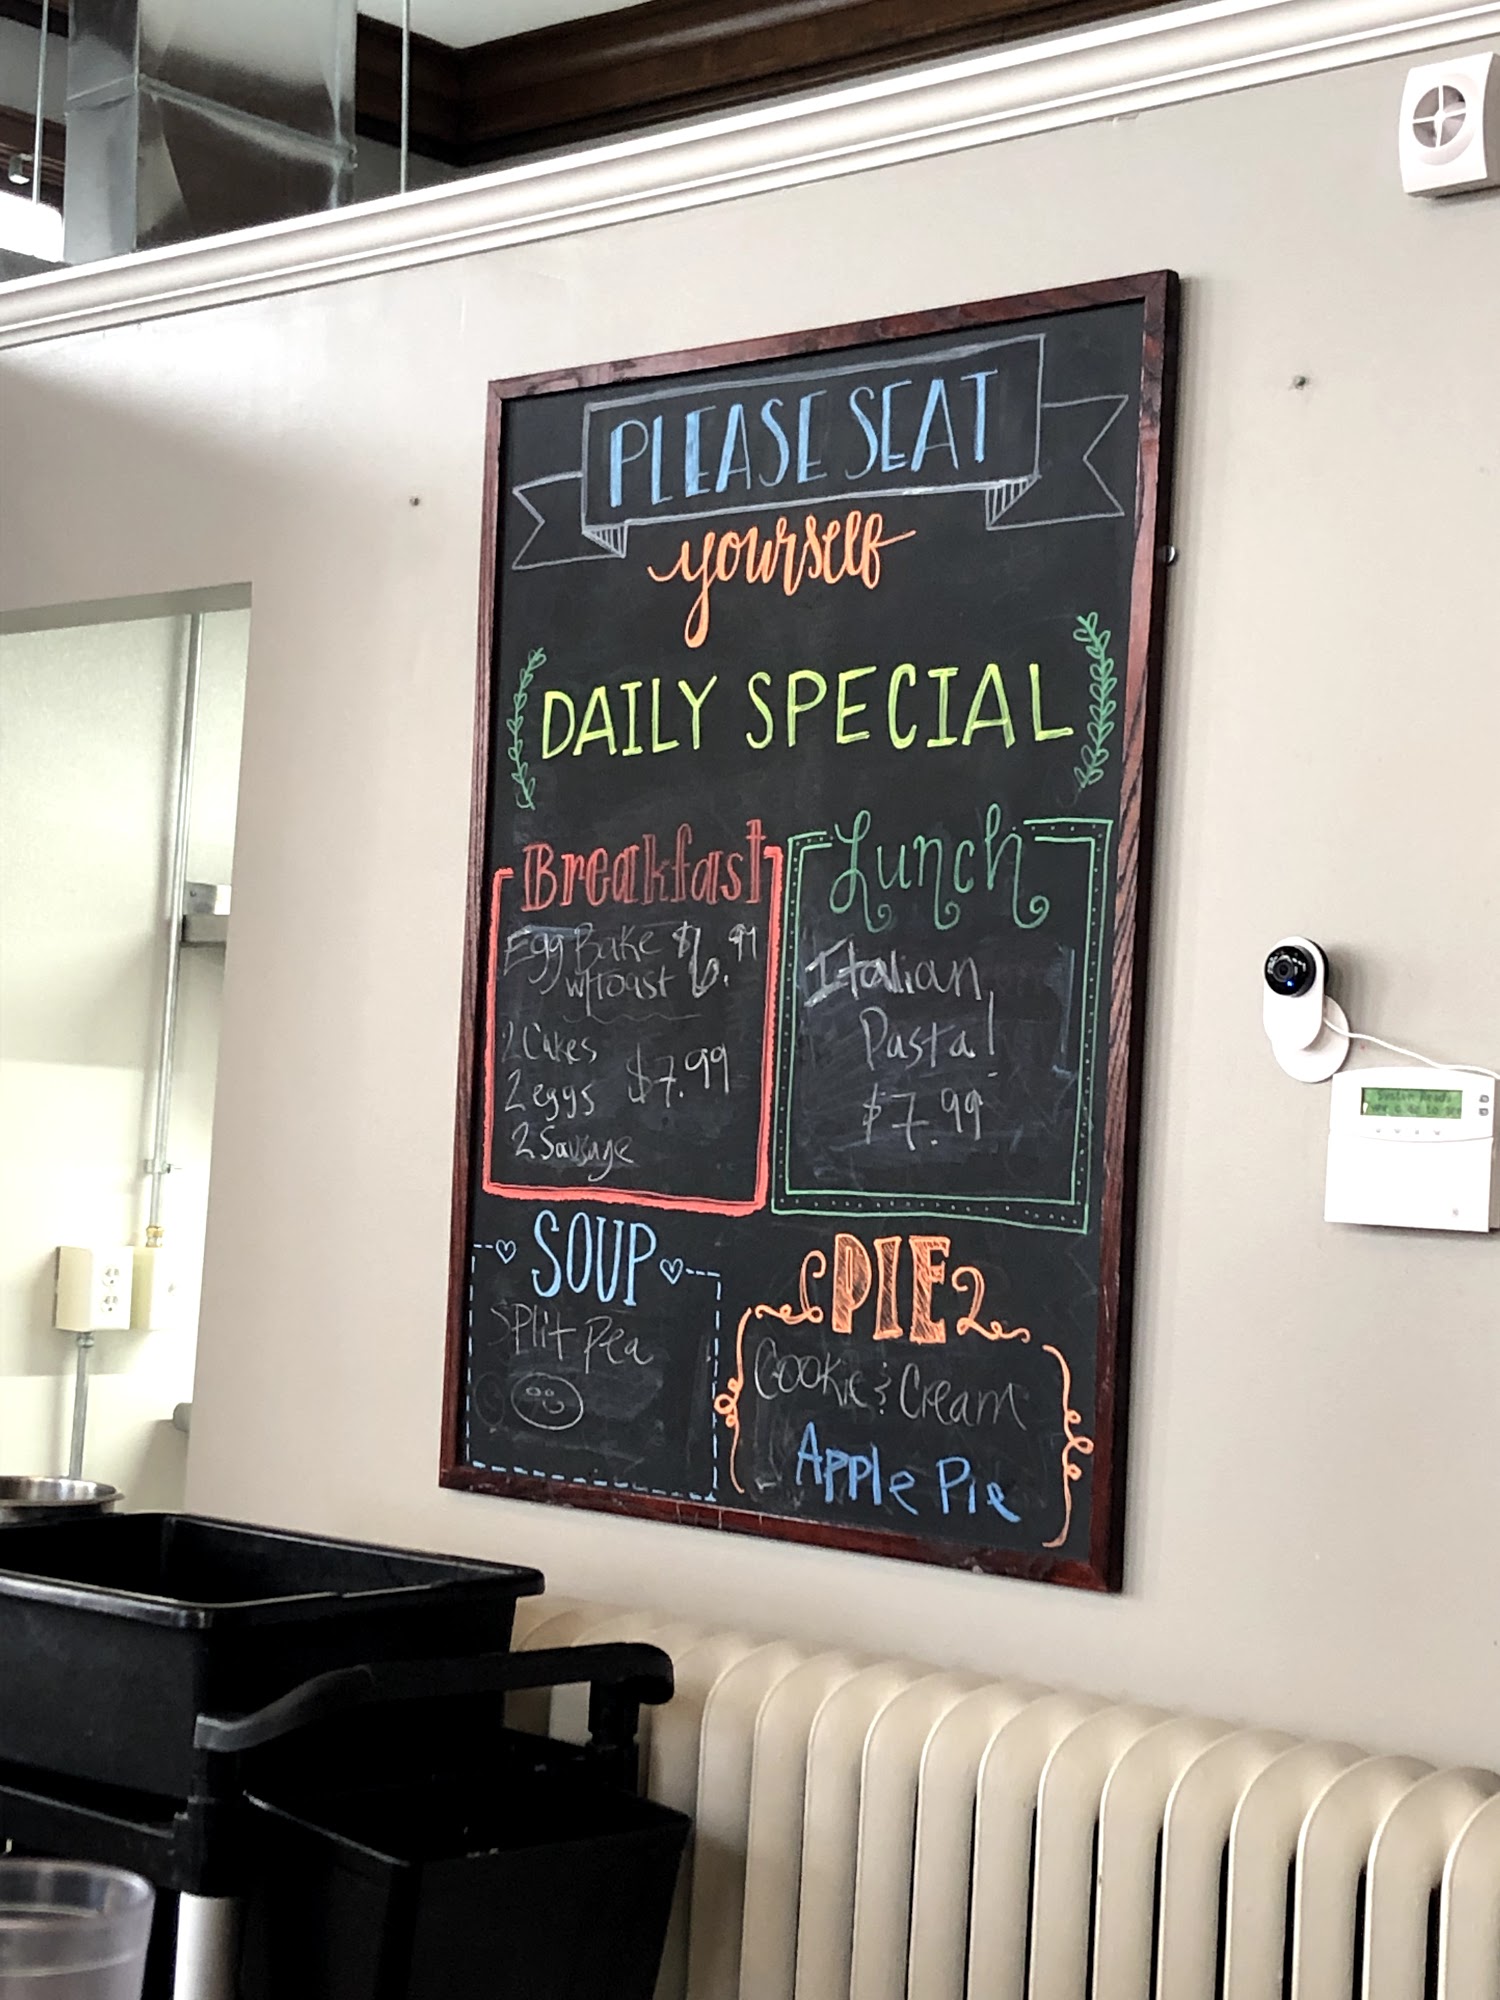 PLEASE SEAT
yourself
DAILY SPECIAL
Breakfast
Egg Bake $6.99
w/toast
2 Cakes
2 eggs $7.99
2 Sausage
Lunch
Italian
Pasta!
$7.99
SOUP
Split Pea
PIE
Cookie & Cream
Apple Pie
System Ready